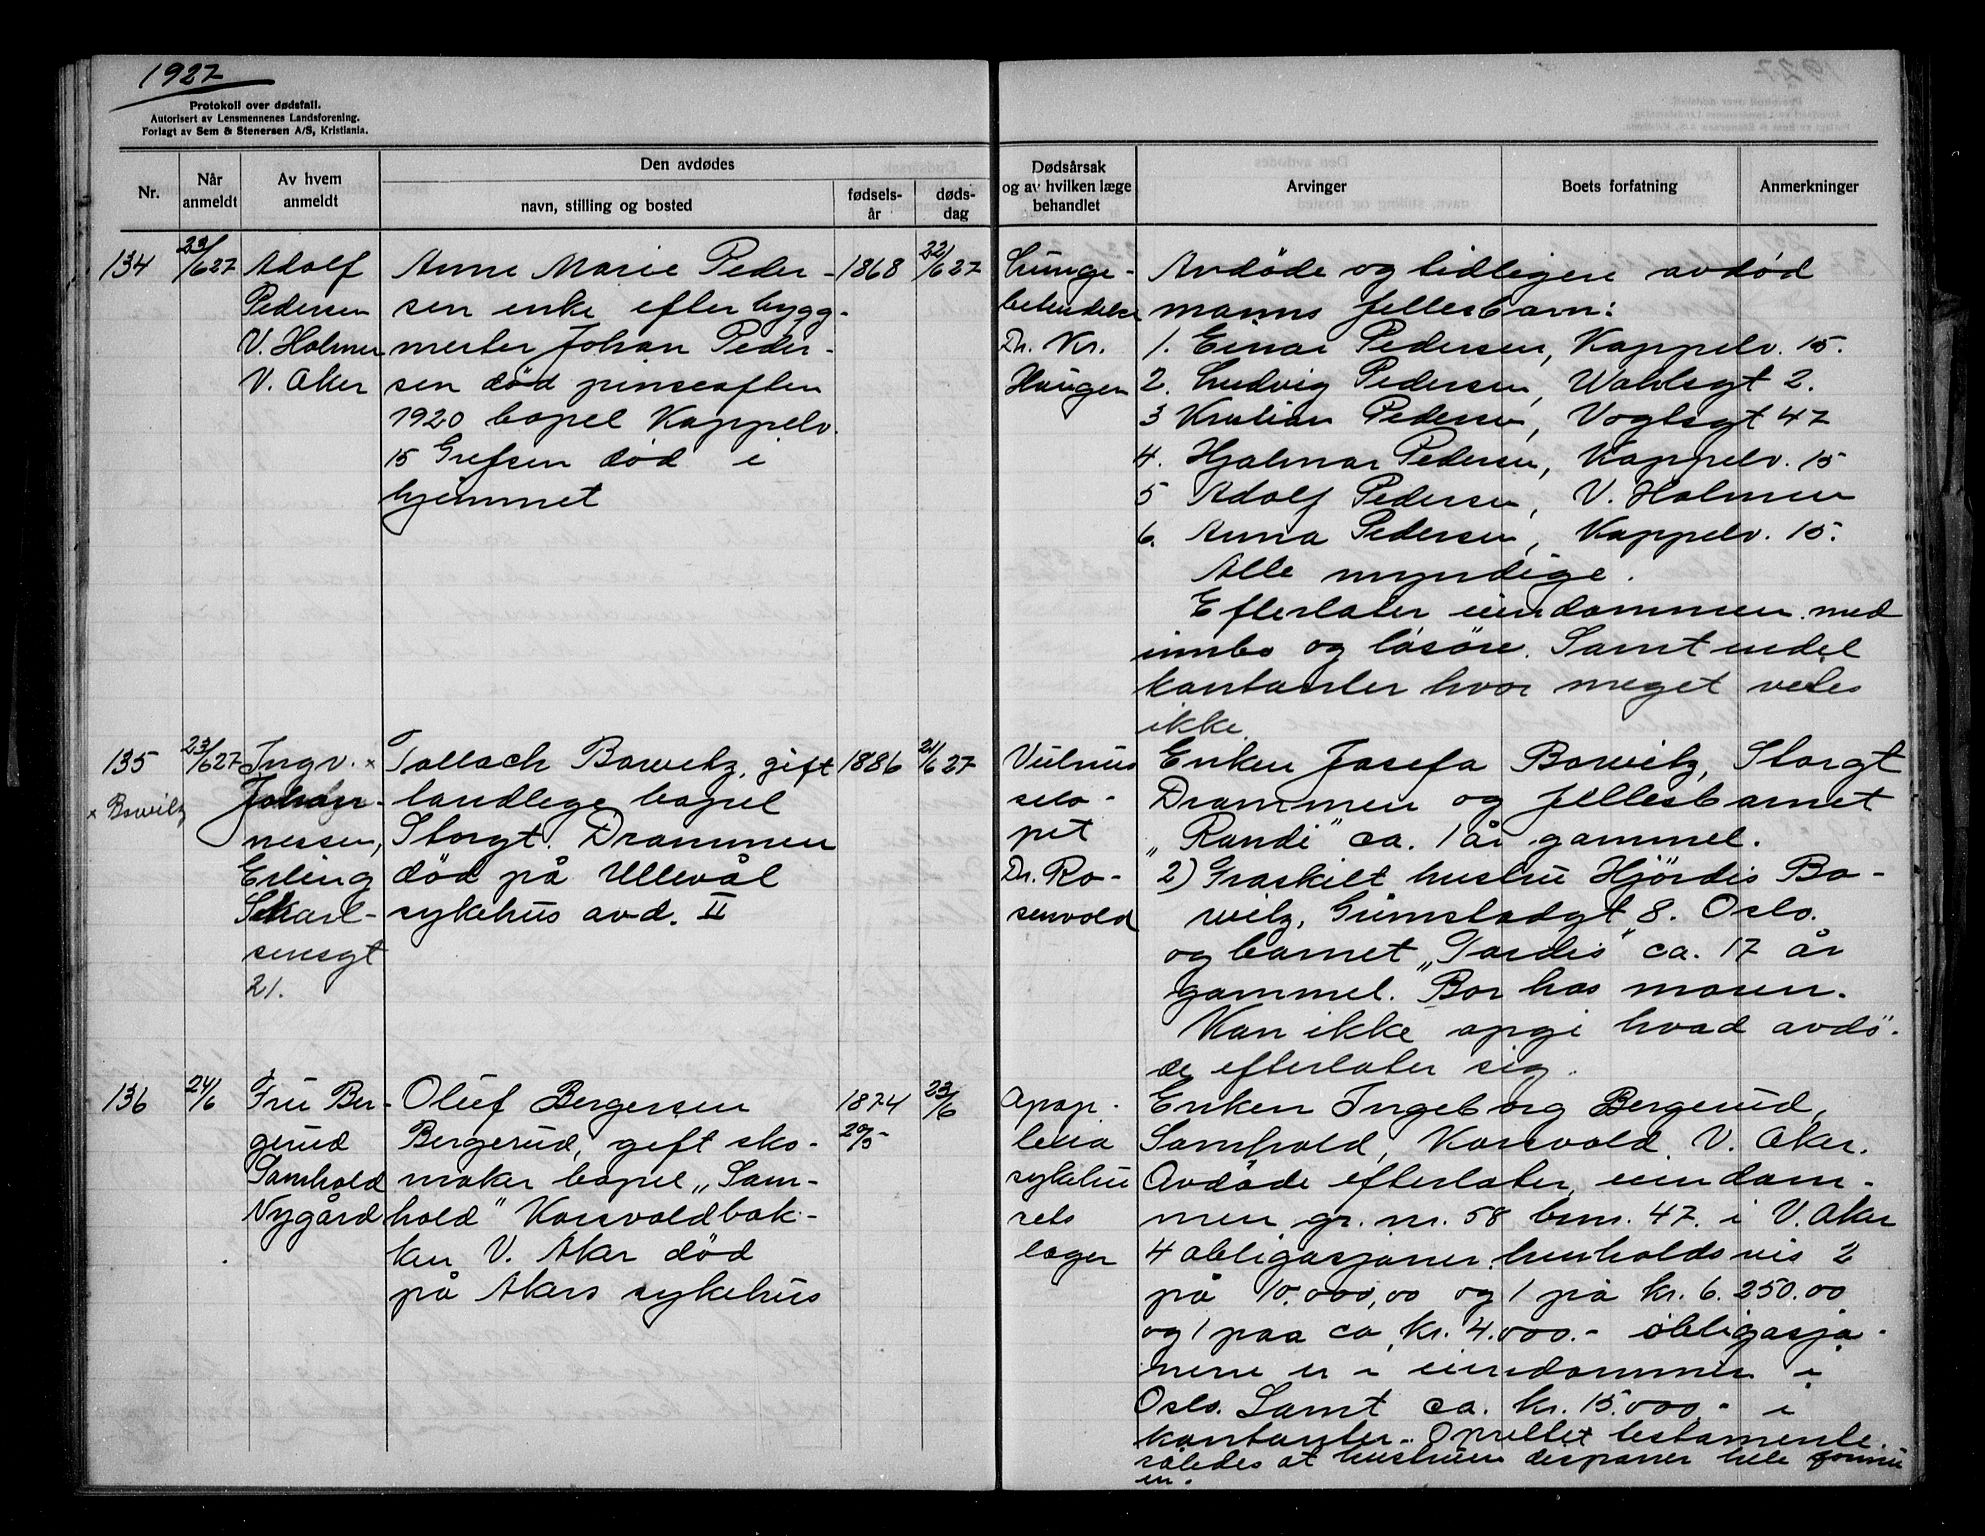 1927
Protokoll over dødsfall.
Autorisert av Lensmennenes Landsforening.
Forlagt av Sem & Stenersen A/S, Kristiania.
Nr.
Når anmeldt
Av hvem anmeldt
Den avdødes
navn, stilling og bosted
fødsels-år
døds-dag
Dødsårsak og av hvilken læge behandlet
Arvinger
Boets forfatning
Anmerkninger
134
23/6 27
Adolf
Pedersen
V. Holmen
V. Aker
Anne Marie Peder-
sen enke efter bygg-
mester Johan Peder-
sen død pinseaften
1920 bopel Kappelv.
15 Grefsen død i
hjemmet
1868
22/6 27
Lunge-
betendelse
Dr. Kr.
Haugen
Avdøde og tidligere avdød
manns fellesbarn:
1. Einar Pedersen, Kappelv. 15.
2. Ludvig Pedersen, Wahlsgt 2.
3 Kristian Pedersen, Vogtsgt 47
4. Hjalmar Pedersen, Kappelv. 15
5 Adolf Pedersen, V. Holmen
6. Anna Pedersen, Kappelv. 15.
Alle myndige.
Efterlater eiendommen med
innbo og løsøre. Samt endel
kontanter hvor meget vetes
ikke.
135
× Bowitz
23/6 27
Ingv. ×
Johan-
nessen,
Erling
Skarl-
sensgt
21.
Tallach Bowitz, gift
tandlege bopel
Storgt. Drammen
død på Ullevål
sykehus avd. II
1886
21/6 27
Vulnus
sclo-
pet
Dr. Ro-
senvold
Enken Josefa Bowitz, Storgt
Drammen og fellesbarnet
„Randi" ca. 1 år gammel.
2) Fraskilt hustru Hjørdis Bo-
witz, Grimstadgt 8. Oslo.
og barnet „Tordis" ca. 17 år
gammel. Bor hos moren.
Kan ikke opgi hvad avdø-
de efterlater sig.
136
24/6
Fru Ber-
gerud
Samhold
Nygård
Oluf Bergersen
Bergerud, gift sko-
maker bopel „Sam-
hold" Korsvoldbak-
ken V. Aker død
på Akers sykehus
1874
20/5-
23/6
Apop-
lexia
sykehu
sets
læger
Enken Ingeborg Bergerud,
Samhold, Korsvold. V. Aker.
Avdøde efterlater eiendom-
men gr. nr. 58 brnr. 47. i V. Aker
4 obligasjoner henholdsvis 2
på 10.000,00 og 1 på kr. 6.250.00
og 1 paa ca kr. 4.000.- obligasjo-
nene er i eiendommer i
Oslo. Samt ca. kr. 15.000.- i
kontanter. Oprettet testamente
således at hustruen disponer hele formu
en.